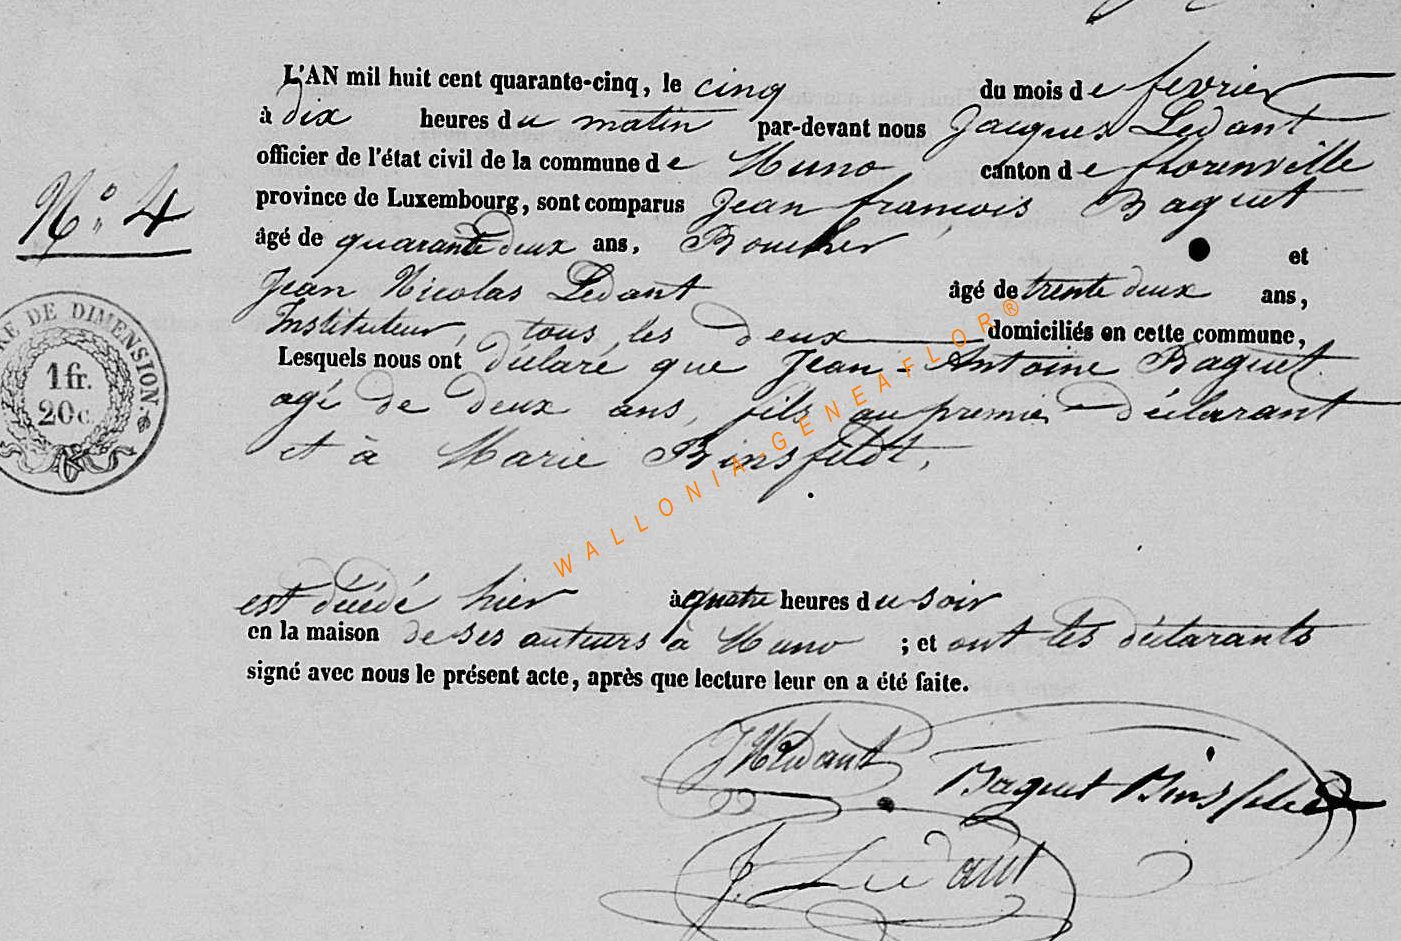 L'AN mil huit cent quarante-cinq, le cinq du mois de fevrier
à dix heures du matin par-devant nous Jacques Ledant
officier de l'état civil de la commune de Muno canton de florenville
province de Luxembourg, sont comparus Jean francois Baquet
âgé de quarante deux ans, Boucher et
Jean Nicolas Ledant âgé de trente deux ans,
Instituteur, tous les deux domiciliés en cette commune,
Lesquels nous ont déclaré que Jean-Antoine Baquet
agé de deux ans, fils au premier déclarant
et à Marie Binsfeldt,
est décédé hier à quatre heures du soir
en la maison de ses auteurs à Muno ; et ont les déclarants
signé avec nous le présent acte, après que lecture leur en a été faite.
N° 4
RE DE DIMENSION.
1 fr.
20 c.
JNLedant
Baquet Binsfeld
J. Ledant
WALLONIA-GENEAFLOR®